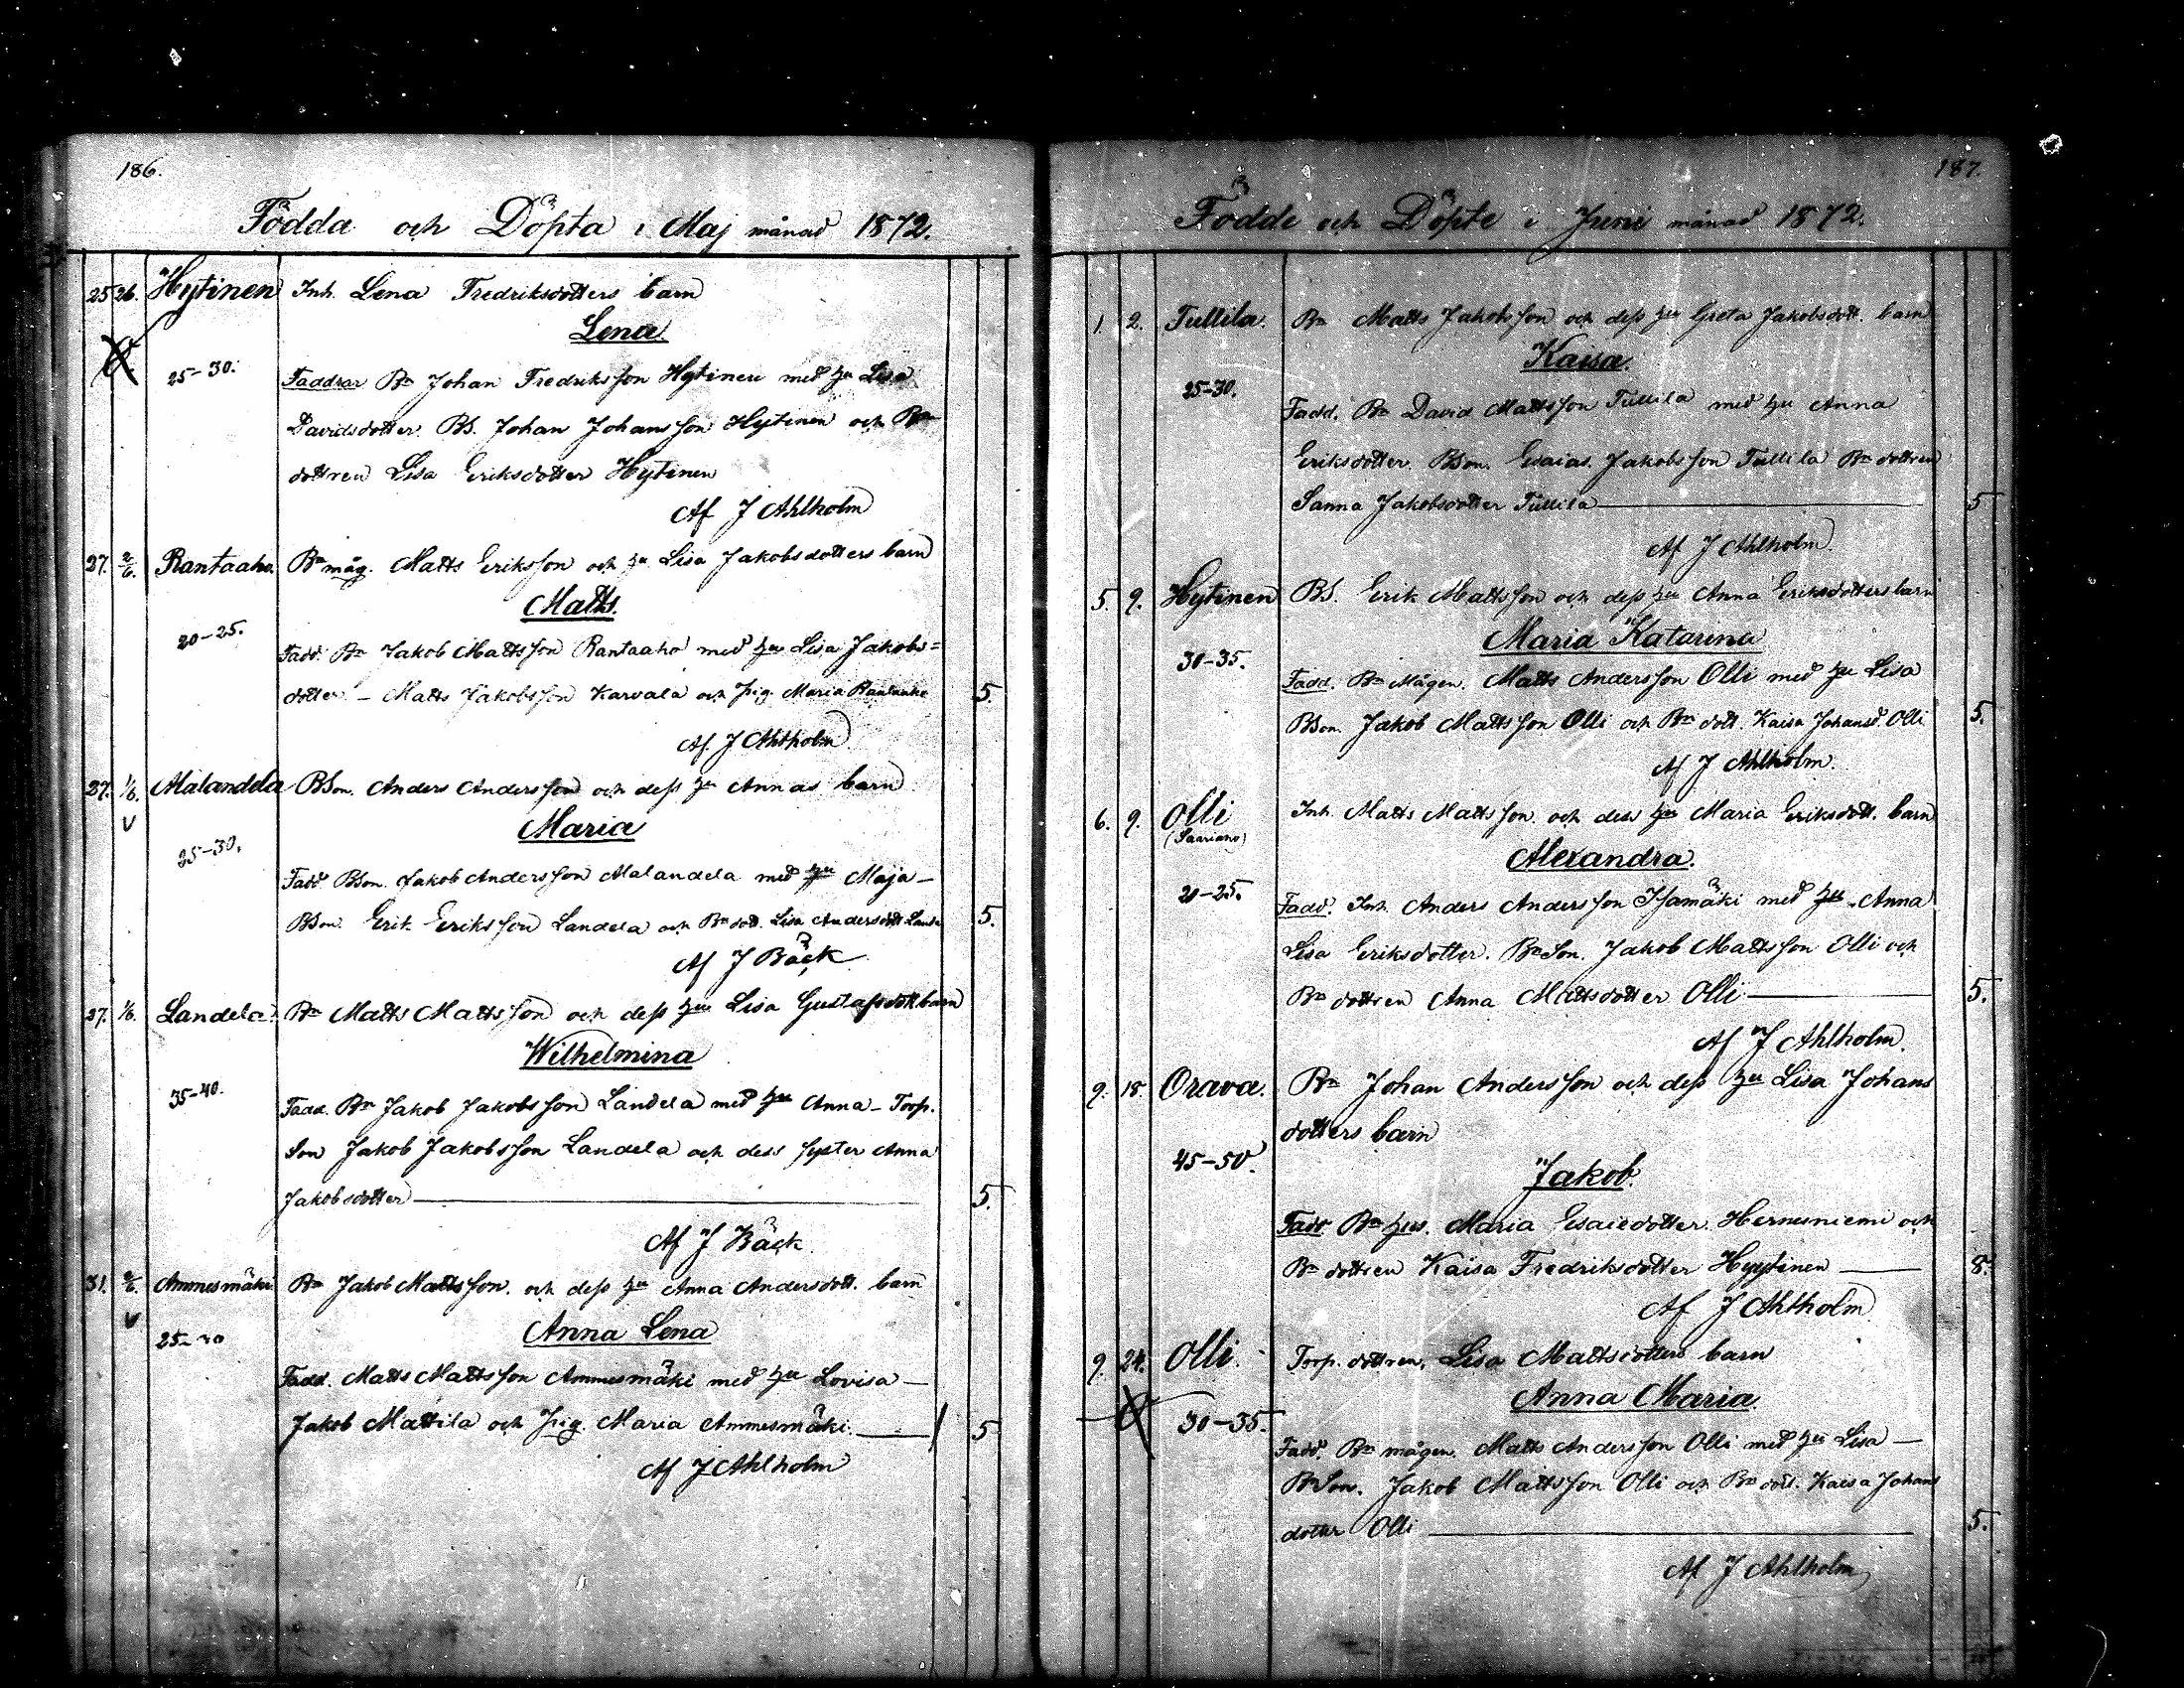 186.
Födda och Döpta i Maj månad 1872.
25 26. Hytinen Inh. Lena Fredriksdotters barn
Lena
25-30. Faddrar Bn Johan Fredriksson Hytinen med hu Lisa
Davidsdotter. BS. Johan Johansson Hytinen och Bn
dottren Lisa Eriksdotter Hytinen
Af J Ahlholm
27. 2/6. Rantaaho Bn måg. Matts Eriksson och hu Lisa Jakobsdotters barn
Matts.
20-25. Fadd. Bn Jakob Mattsson Rantaaho med hu Lisa Jakobs=
dotter - Matts Jakobsson Karvala och pig. Maria Rantaaho 5.
Af J Ahlholm
27. 1/6. Malandela BSon. Anders Andersson och dess hu Annas barn
V
Maria
25-30. Fadd. BSon. Jakob Andersson Malandela med hu Maja -
BSon. Erik Eriksson Landela och Bn dott. Lisa Andersdott 5.
Af J Bäck
27. 1/6. Landela Bn Matts Mattsson och dess hu Lisa Gustafsdott. barn
Wilhelmina
35-40. Fadd. Bn Jakob Jakobsson Landela med hu Anna - Torp.
Son Jakob Jakobsson Landela och dess syster Anna
Jakobsdotter 5.
Af J Bäck.
31. 2/6. Ammesmäki Bn Jakob Mattsson. och dess hu Anna Andersdott. barn
V
25-30 Anna Lena
Fadd. Matts Mattsson Ammesmäki med hu Lovisa -
Jakob Mattila och pig. Maria Ammesmäki. 5
Af J Ahlholm
187.
Födde och Döpte i Juni månad 1872.
1. 2. Tullila. Bn Matts Jakobsson och dess hu Greta Jakobsdott. barn
Kaisa.
25-30. Fadd. Bn David Mattsson Tullila med hu Anna
Eriksdotter. BSon. Esaias Jakobsson Tullila Bn dottren
Sanna Jakobsdotter Tullila 5
Af J Ahlholm.
5. 9. Hytinen BS. Erik Mattsson och dess hu Anna Eriksdotters barn
Maria Katarina
30-35. Fadd. Bn Mågen. Matts Andersson Olli med hu Lisa
BSon. Jakob Mattsson Olli och Bn dott. Kaisa Johansd. Olli 5.
Af J Ahlholm.
6. 9. Olli Inh. Matts Mattsson och dess hu Maria Eriksdott. barn
(Saariaho)
Alexandra.
20-25. Fadd. Inh. Anders Andersson Isamäki med hu Anna
Lisa Eriksdotter. Bn Son. Jakob Mattsson Olli och
Bn dottren Anna Mattsdotter Olli 5.
Af J Ahlholm.
9. 18. Orava. Bn Johan Andersson och dess hu Lisa Johans
dotters barn
45-50. Jakob.
Fadd Bn hus. Maria Esaiedotter Hernesniemi och
Bn dottren Kaisa Fredriksdotter Hyytinen 8.
Af J Ahlholm
9. 24. Olli. Torp. dottren, Lisa Mattsdotters barn
Anna Maria.
30-35. Fadd. Bn mågen. Matts Andersson Olli med hu Lisa -
Bn Son. Jakob Mattsson Olli och Bn dott. Kaisa Johans
dotter Olli 5.
Af J Ahlholm